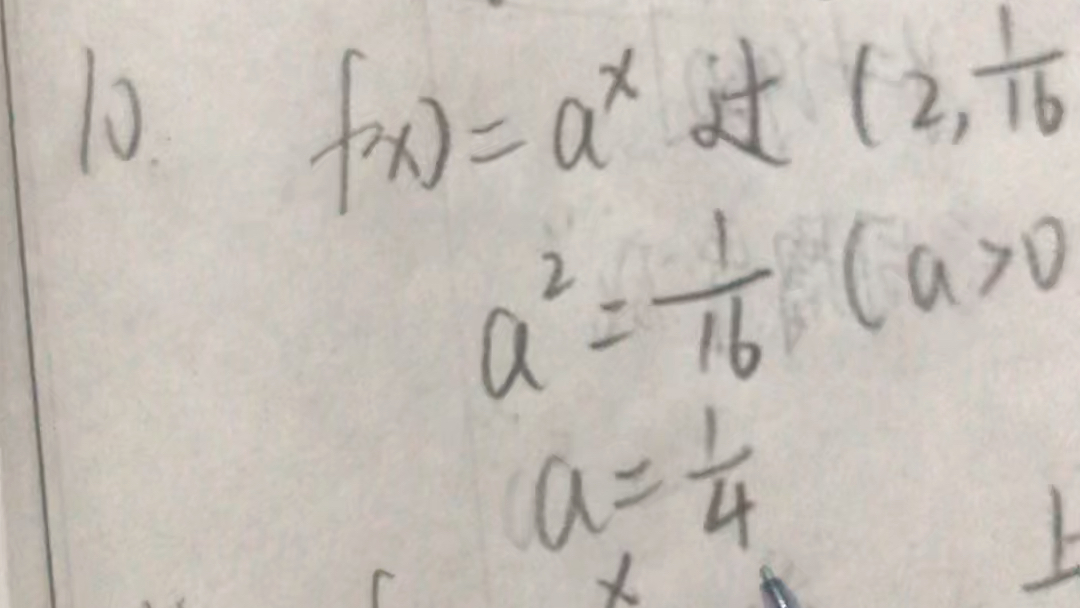 10. f(x)=a^x 过 (2, 1/16
a^2 = 1/16 (a>0
a = 1/4
x